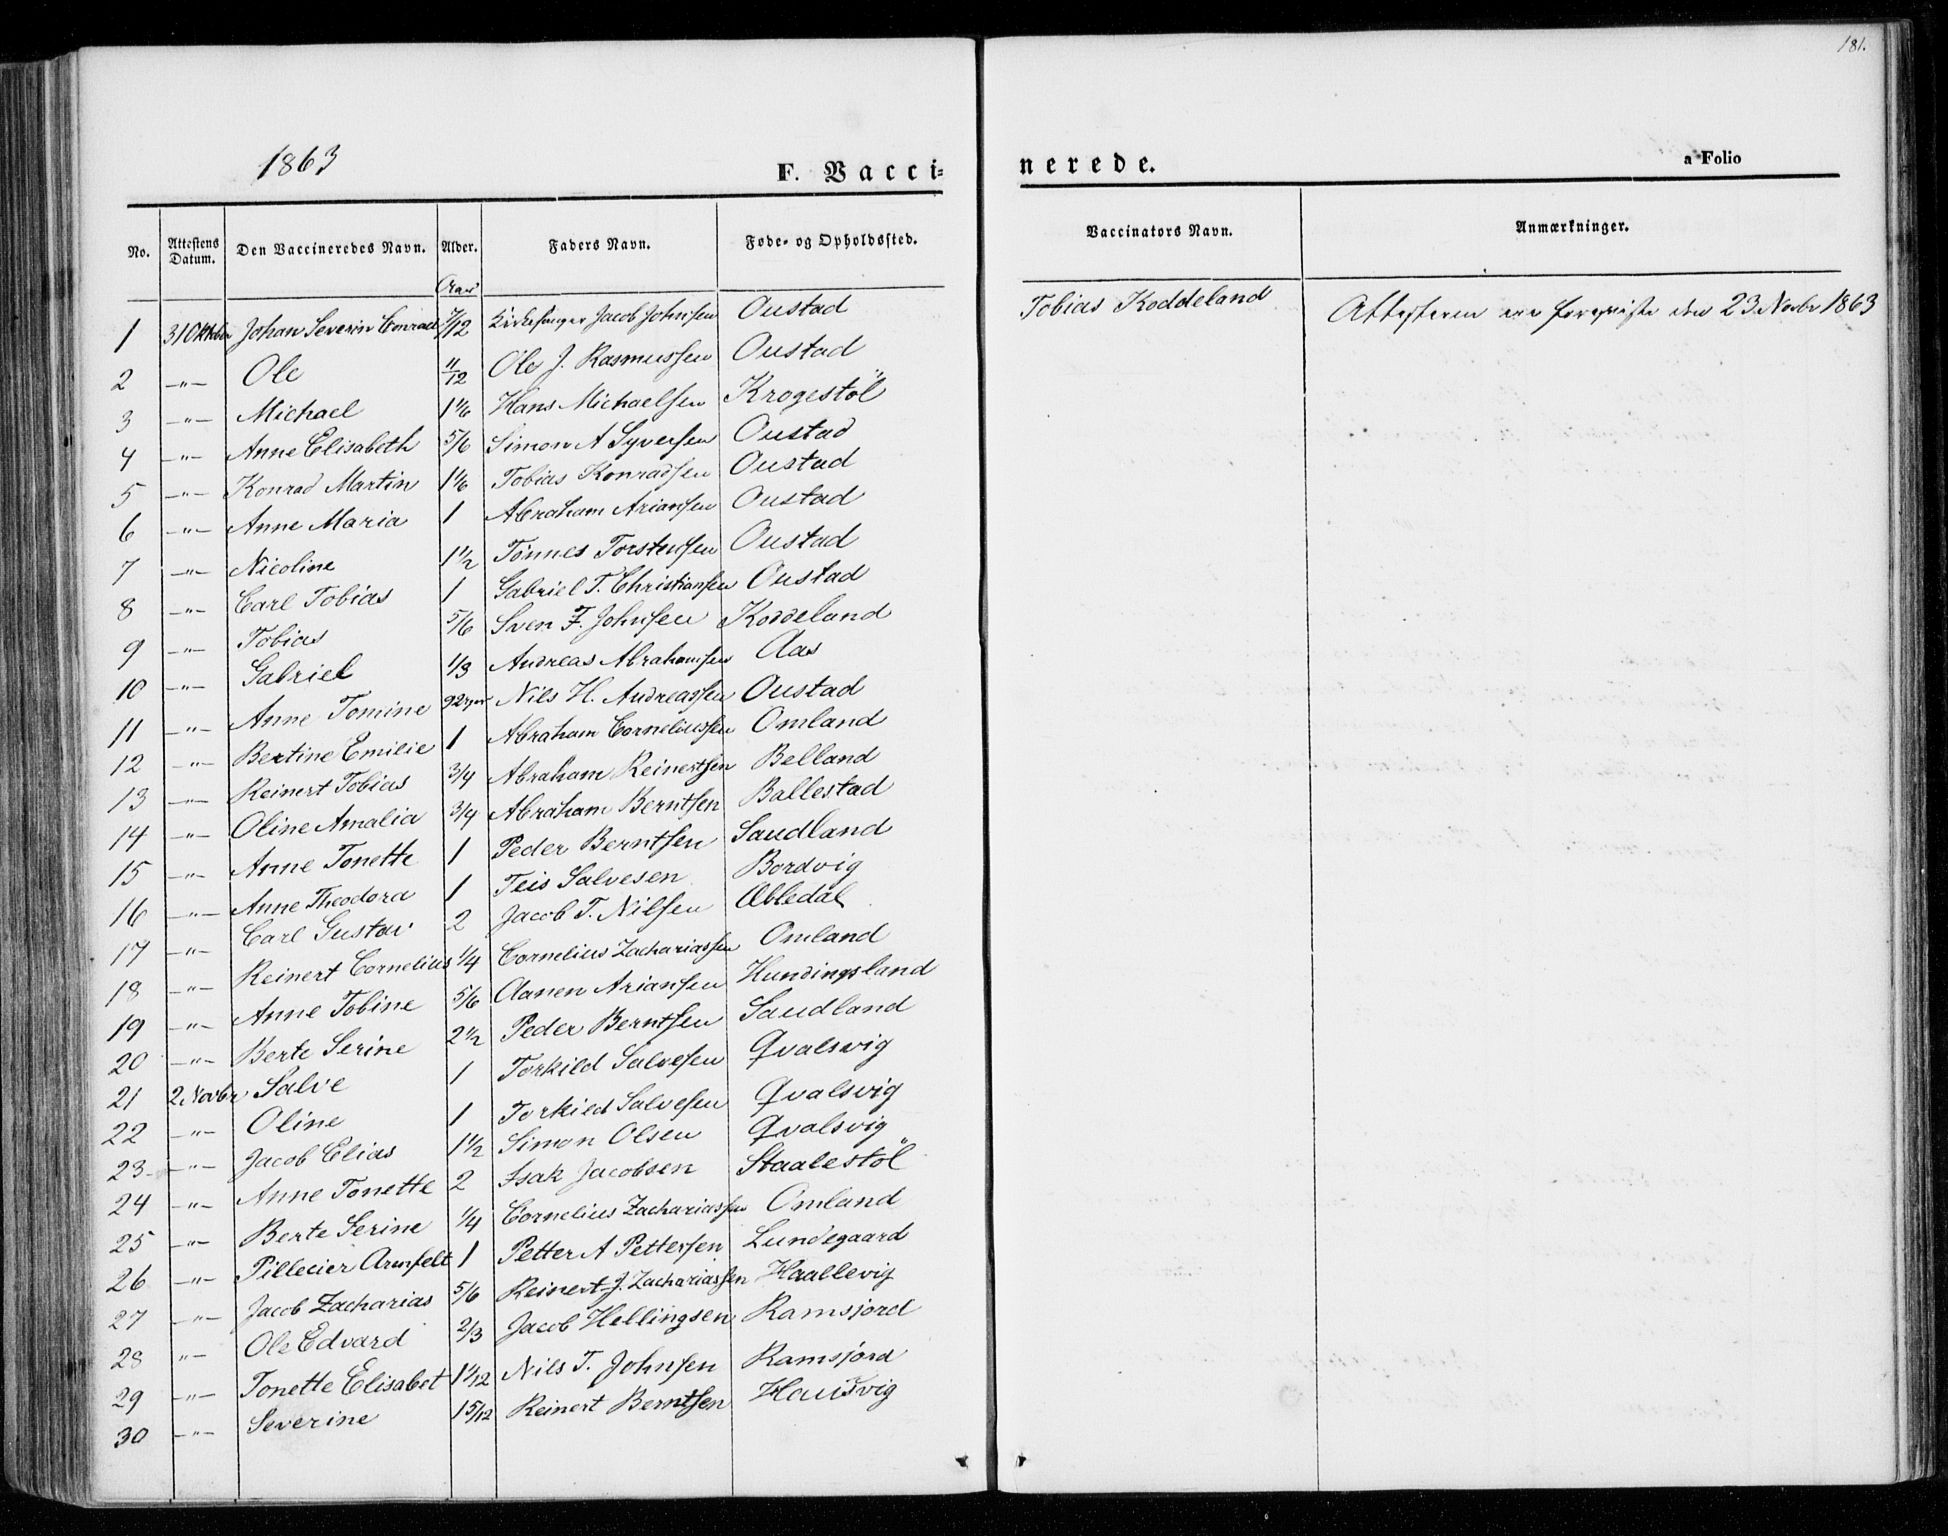 181.
1863 F. Vacci- nerede. a Folio
No. Attestens Datum. Den Vaccineredes Navn. Alder. Faders Navn. Føde- og Opholdssted. Vaccinators Navn. Anmærkninger.
Aar
1 31 Oktober Johan Severin Conrad 7/12 Kirkesanger Jacob Johnsen Oustad Tobias Koddeland Attesterne ere foreviste den 23 Novbr 1863
2 -"- Ole 11/12 Ole J. Rasmussen Oustad
3 -"- Michael 1 1/6 Hans Michaelsen Krogestöl
4 -"- Anne Elisabeth 5/6 Simon A Syversen Oustad
5 -"- Konrad Martin 1 1/6 Tobias Konradsen Oustad
6 -"- Anne Maria 1 Abraham Ariansen Oustad
7 -"- Nicoline 1 1/2 Tönnes Torstensen Oustad
8 -"- Carl Tobias 1 Gabriel T. Christiansen Oustad
9 -"- Tobias 5/6 Sven F. Johnsen Koddeland
10 -"- Gabriel 1/3 Andreas Abrahamsen Aas
11 -"- Anne Tomine Nils H. Andreassen Oustad
12 -"- Bertine Emilie 1 Abraham Corneliussen Omland
13 -"- Reinert Tobias 3/4 Abraham Reinertsen Belland
14 -"- Oline Amalia 3/4 Abraham Berntsen Ballestad
15 -"- Anne Tonette 1 Peder Berntsen Saudland
16 -"- Anne Theodora 1 Teis Salvesen Bordvig
17 -"- Carl Gustav 2 Jacob T. Nilsen Æbledal
18 -"- Reinert Cornelius 1/4 Cornelius Zachariassen Omland
19 -"- Anne Tobine 5/6 Aanen Ariansen Hundingsland
20 -"- Berte Serine 2 1/2 Peder Berntsen Saudland
21 2 Novbr Salve 1 Torkild Salvesen Qvalsvig
22 -"- Oline 1 Torkild Salvesen Qvalsvig
23 -"- Jacob Elias 1 1/2 Simon Olsen Qvalsvig
24 -"- Anne Tonette 2 Isak Jacobsen Staalestöl
25 -"- Berte Serine 1/4 Cornelius Zachariassen Omland
26 -"- Pillecier Armfelt 1 Petter A Pettersen Lundegaard
27 -"- Jacob Zacharias 5/6 Reinert J. Zachariassen Haallevig
28 "- Ole Edvard 2/3 Jacob Hellingsen Ramsjord
29 -"- Tonette Elisabet 1 1/12 Nils T. Johnsen Ramsjord
30 -"- Severine 1 5/12 Reinert Berntsen Hausvig